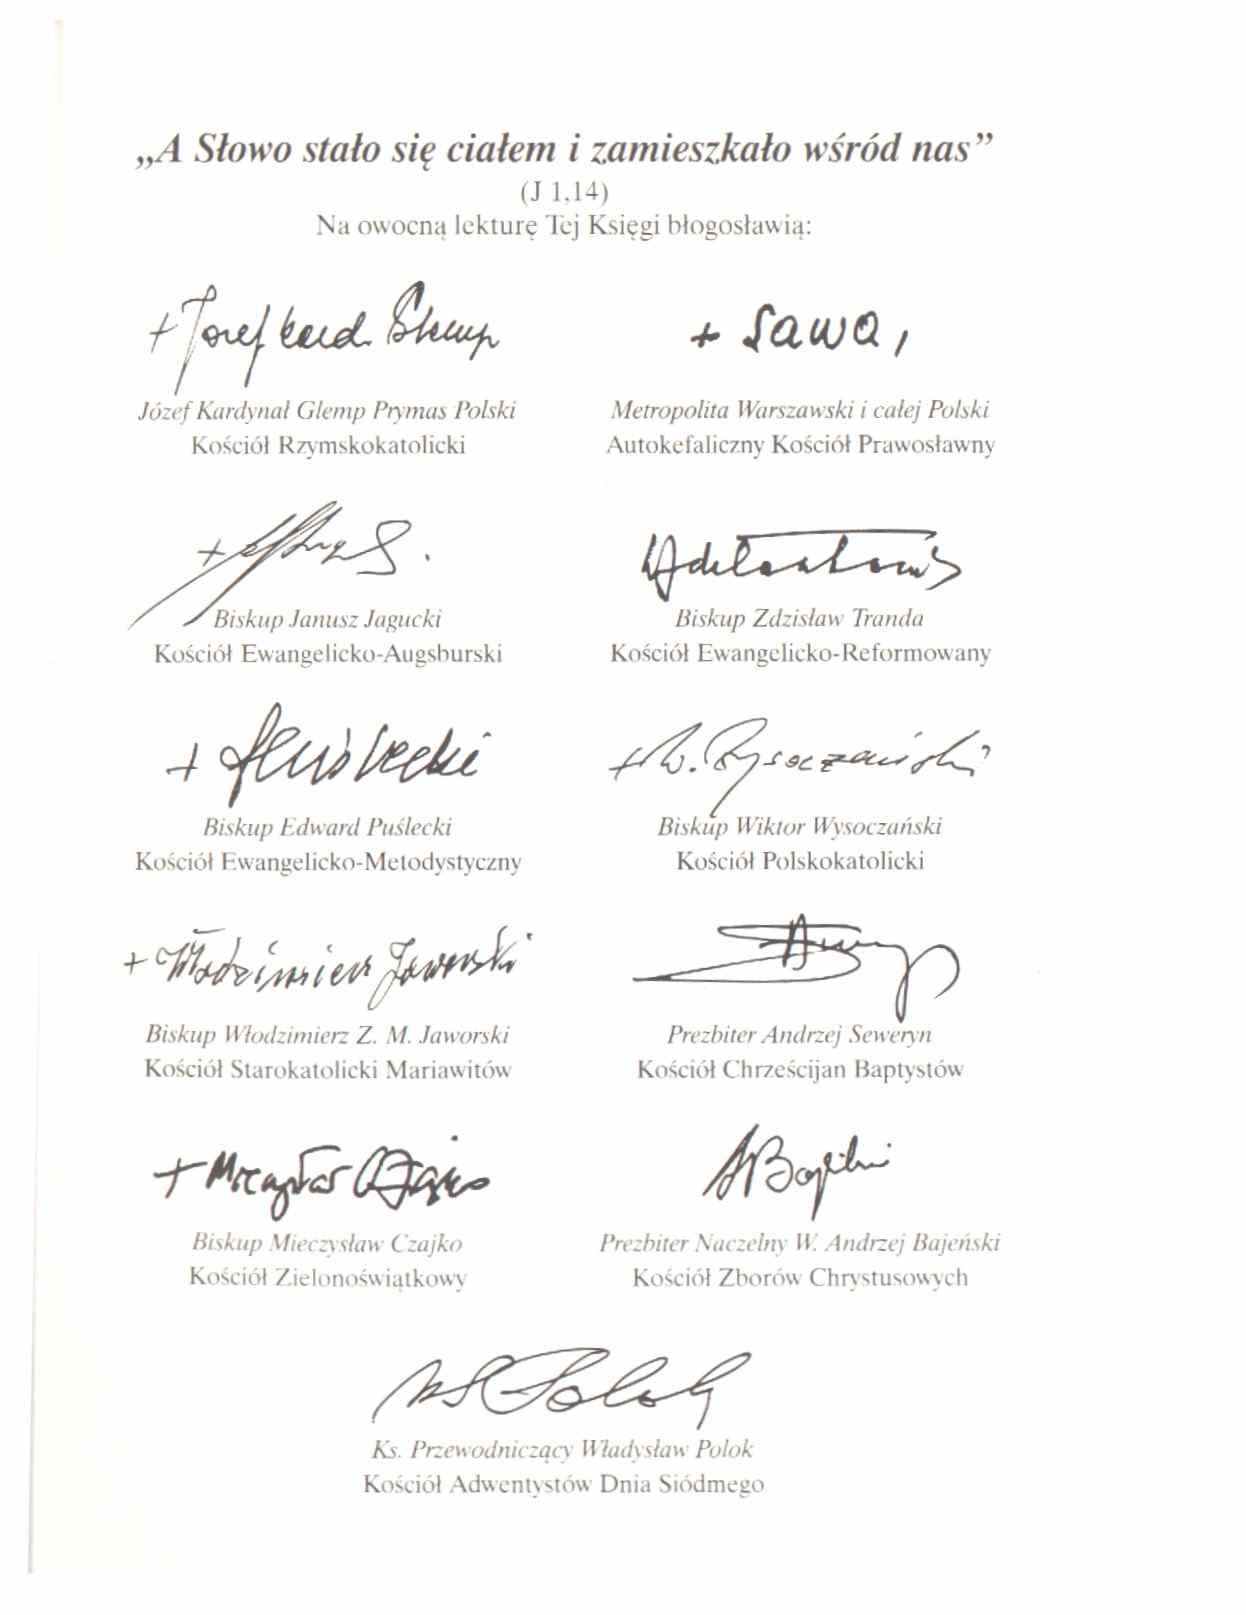 „A Słowo stało się ciałem i zamieszkało wśród nas”
(J 1,14)
Na owocną lekturę Tej Księgi błogosławią:
+ Józef kard. Glemp
+ Sawa,
Józef Kardynał Glemp Prymas Polski
Kościół Rzymskokatolicki
Metropolita Warszawski i całej Polski
Autokefaliczny Kościół Prawosławny
Biskup Janusz Jagucki
Kościół Ewangelicko-Augsburski
Biskup Zdzisław Tranda
Kościół Ewangelicko-Reformowany
+ W. Wysoczański
Biskup Edward Puślecki
Kościół Ewangelicko-Metodystyczny
Biskup Wiktor Wysoczański
Kościół Polskokatolicki
+ Włodzimierz Jaworski
Biskup Włodzimierz Z. M. Jaworski
Kościół Starokatolicki Mariawitów
Prezbiter Andrzej Seweryn
Kościół Chrześcijan Baptystów
+ Mieczysław Czajko
Biskup Mieczysław Czajko
Kościół Zielonoświątkowy
Prezbiter Naczelny W. Andrzej Bajeński
Kościół Zborów Chrystusowych
Wł Polok
Ks. Przewodniczący Władysław Polok
Kościół Adwentystów Dnia Siódmego